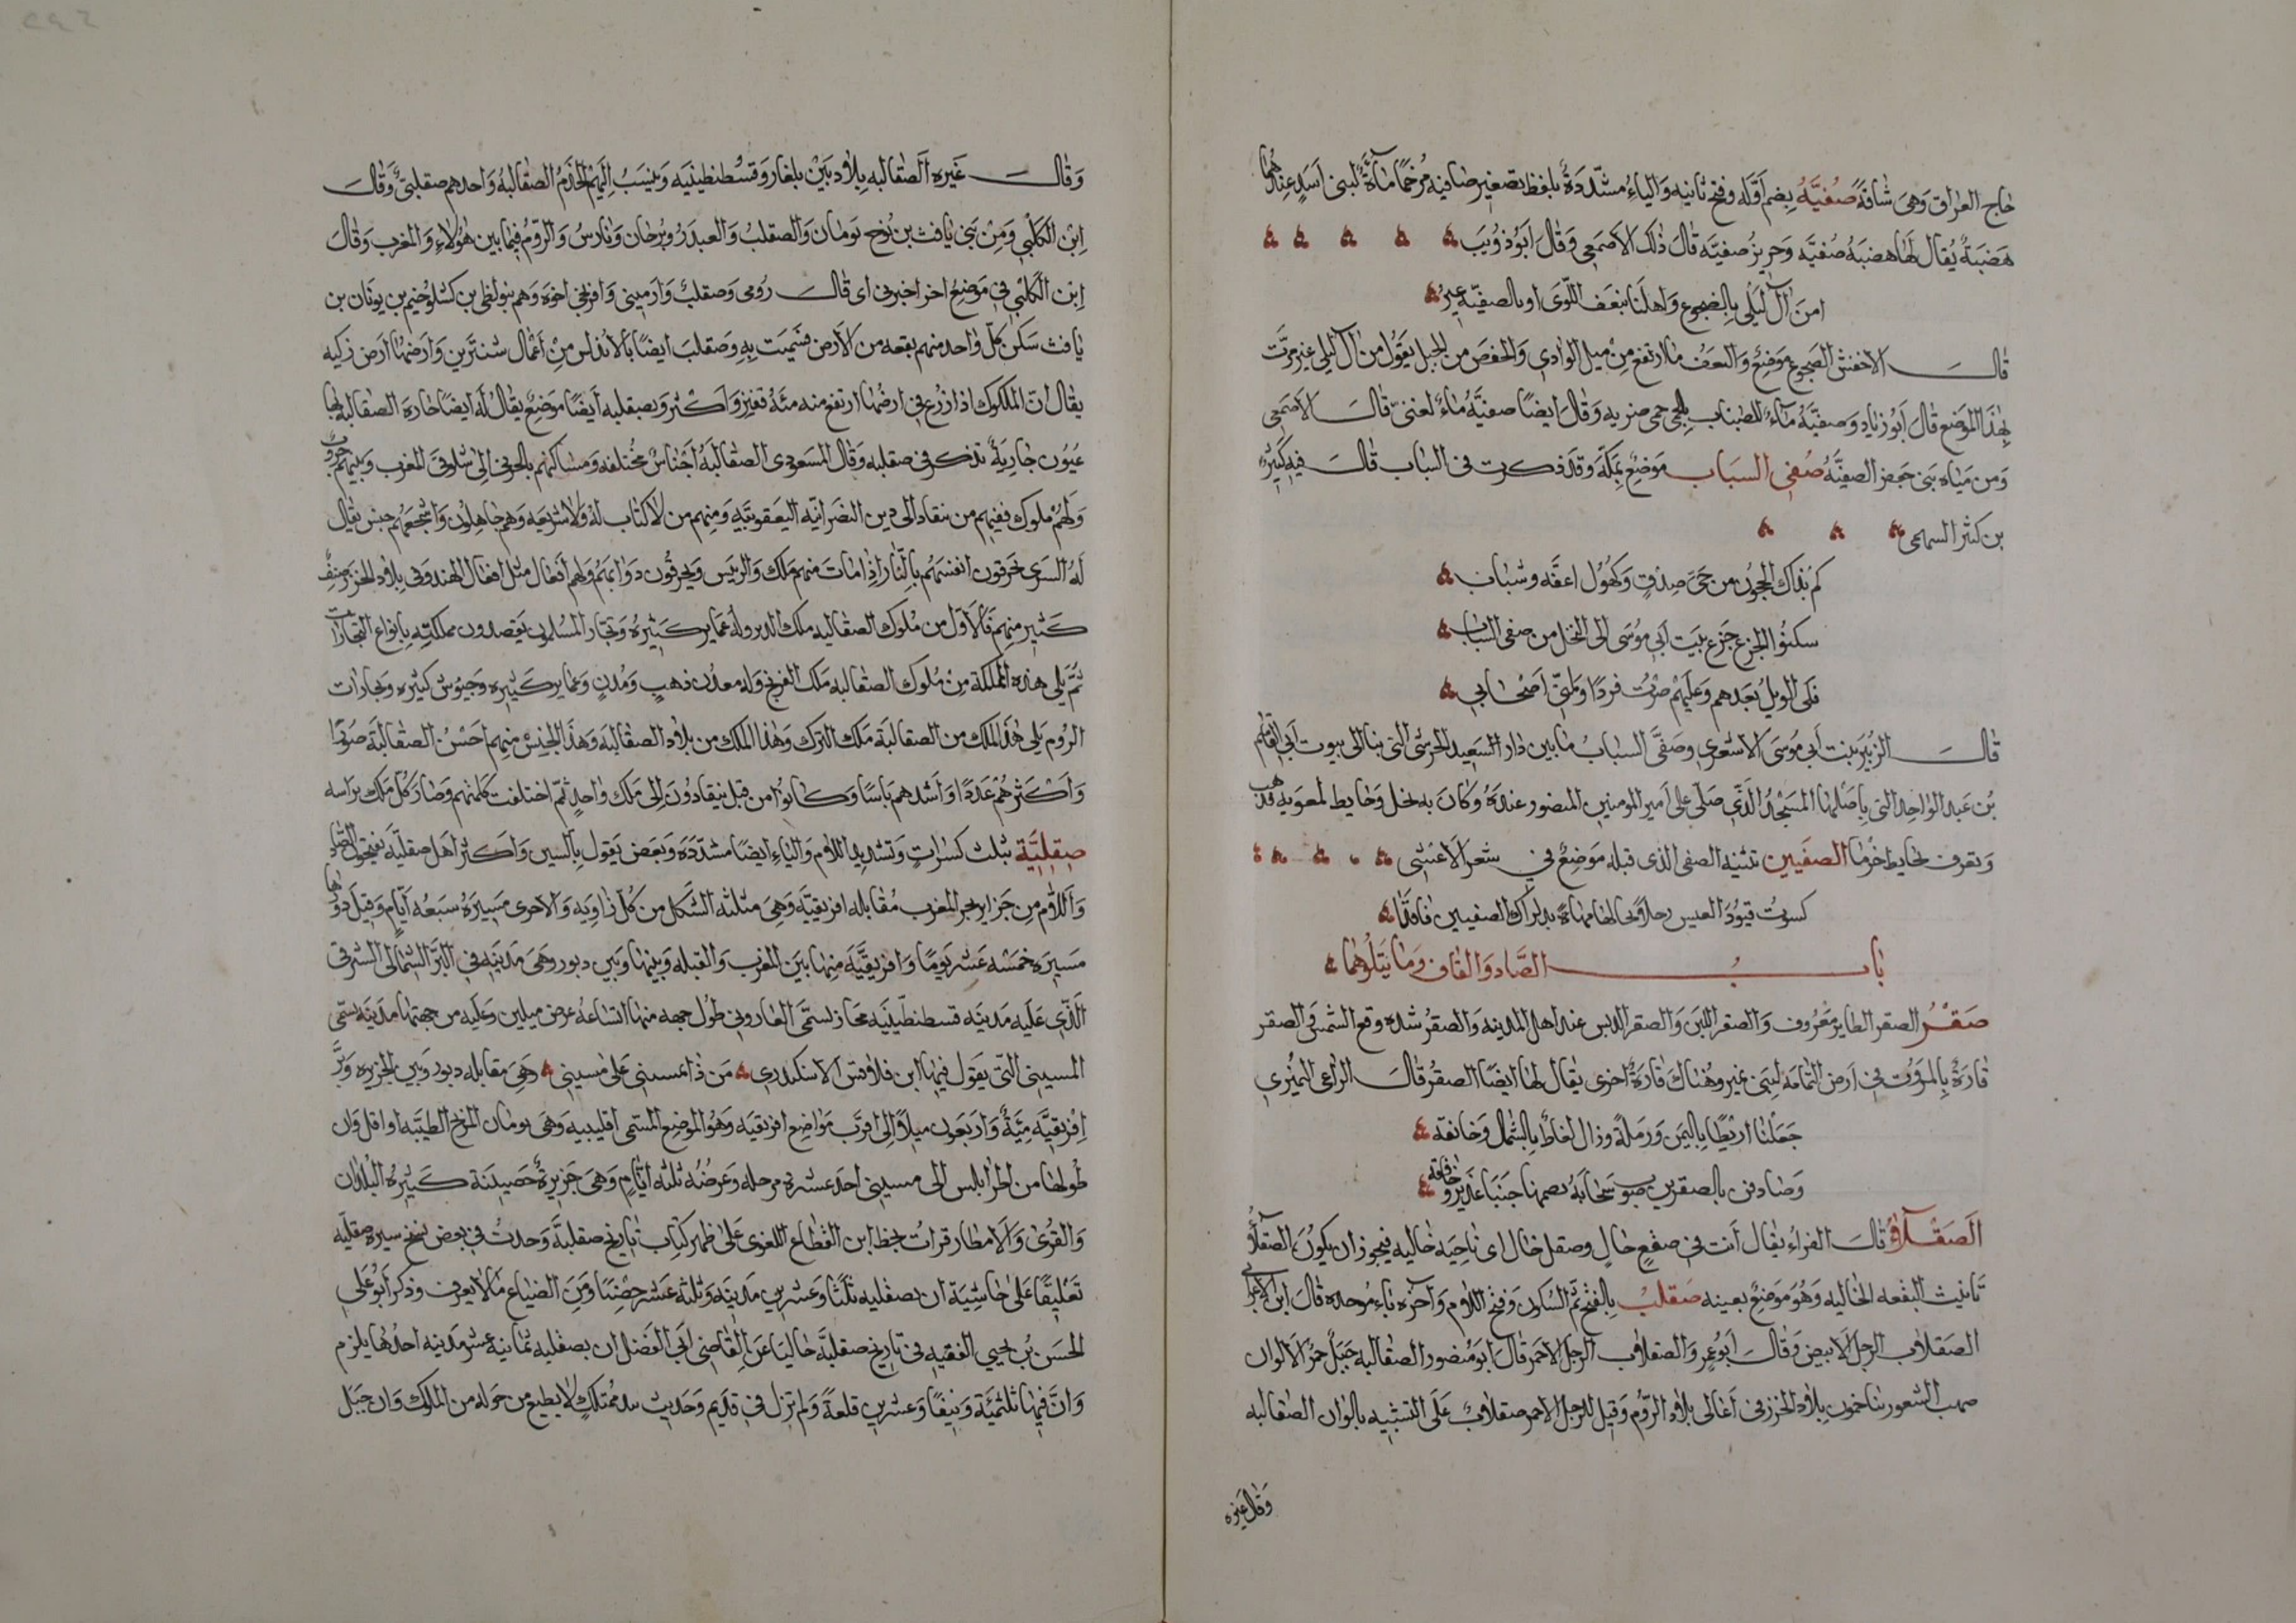 حاج العراق وهى شاقة صُفيَّةُ بضم اوّله وفتح ثانيه والياءُ مشدّدةٌ بلفظ تصغير صافيه مرخمًا ماءَةٌ لبنى اسَدٍ عندها
هَضبَةٌ يُقال لهَا هضبَةُ صُفيَّه وحزيز صُفيَّه قال ذلك الاصمَعى وَقال ابَوُ ذؤيَب
امن آل ليلى بالضجوع وَاهلنا بنعَف اللّوَى او بالصفيّة عير
قالـــ الاخفش الضجوع موَضعٌ وَالنعف ما ارتفع من مَيل الوادى وَانخفض من الجبل يقول من آل ليلى عير مرّت
بهذا الموَضع قال ابَوُ زياد وَصفيّة مَاءٌ للضباب بالحمى حمى ضريه وَقال ايضًا صفيّهُ ماءٌ لغنىّ قالـ الاصَمعى
وَمن ميَاه بَنى جَعفر الصفيَّهُ صُفى السبَاب مَوضعٌ بمكّة وَقد ذكرت فى السباب قالـــ فيه كثير
بن كثير السهمى
كم بذاك الحجون من حىَّ صدق وكهُول اعفّه وشباب
سكنوا الجزع جزع بيت ابى موُسَى الى النخل من صفى السباب
فلى الويل بعَدهم وَعليهمْ صرت فردًا وَملنى اَصْحابى
قالـــ الزُبير بيت ابى موُسَى الاشعرى وصَفىَّ السباب مَا بين دَار السَعيد الحرشى التى بنا الى بيوت ابى القاسم
بن عَبد الواحد التى باَصلها المسَجدُ الذى صَلّى على اَمير المومنين المنصور عندهُ وكانَ به نخل وحايط لمعوَيه فذهب
وَيعرف بحايط خرما الصفَيين تثنيه الصفى الذى قبله مَوضعٌ فى شعر الاعَشى
كسوت قيوُدَ العيس رحلاً
بابـــ الصَّاد وَالقاف وَمَا يَتَلوُهما
صَقْـر الصقر الطاير معَروُف وَالصقر اللبن وَالصقر الدبس عند اهل المدينه وَالصقرُ شده وقع الشمس وَالصقر
قارةٌ بالمرُوت فى ارَض اليَمامَه لبنَى نمير وهُناك قارةٌ اخرى يقال لها ايضًا الصقرُ قالـــ الراعى النميُرى
جَعَلنا اريْطًا باليمين وَرَملة وزال لغاط بالشمال وَخانقه
وَصَادفن بالصقرين صَوبَ سَحَابَةٍ تضمنها جَنبَا غدَير وخافقه
اَلصَقْـلاَءُ قالـ الفراءُ يقال اَنت فى صقعٍ خال وصقل خال اى ناحيَه خاليه فيجوز ان يكوُن الصقلآءُ
تانيث البقعه الخاليه وَهُوَ مَوضعٌ بعينه صَقلبُ بالفتح ثمّ السكون وفتح اللام وَآخره بَاء مُوحده قال ابن الاعَرابى
الصَقلاب الرجل الابيض وَقالـــ ابوُ عمرو الصقلاب الرجل الاحمَر قال ابَوُ منصور الصقالبه جيل حمرُ الالوان
صهب الشعور يتاخمون بلاد الخزر فى اَعالى بلاد الروُم وَقيل للرجل الاحمر صقلاب عَلَى التشبيه بالوان الصقالبه
وَقال غيره
وَقالـــ غَيره الصَقالبه بلاد بَين بلغار وَقسْطنطينيَه وَينسَبُ اليهمْ الخَدمُ الصقالبهُ وَاحدهم صقلبىٌّ وَقالـــ
ابْن الكلْبى وَمنْ بَنى يَافث بن نُوح يوَنان وَالصقلبُ وَالعبدَرُ وبُرجان وَفارسُ وَالروُم فيمَا بين هوُلاءِ وَالمغرب وَقالَ
ابْن الكَلبى فى مَوضعٍ اخر اخبرنى ابى قالـــ رُومى وَصقلب وَارَمينى وَافرنجى اخوَه وَهم بنو لنطى بن كشلوخيم بن يوُنان بن
يافث سَكن كلّ وَاحد منهم بقعه من الاَرض فسُميّت به وَصَقلبَ ايضًا بالاندلس من اَعْمال شنتَرين وَارَضها ارَض زكيه
يقال ان المكوك اذا زرع فى ارضَها ارتفع منه مئة قفيز وَاكثر وَبصقليه ايَضًا موَضعٌ يقال لهُ ايضًا حَارة الصقالبه بها
عيُون جاريَةٌ تذكر فى صقليه وَقال المسَعودى الصقالبَهُ اَجناسٌ مختلفه وَمسَاكنهم بالجربى الى شلوفى المغرب وَبينهم حروُب
وَلهمُ ملوك فمنهم من ينقاد الى دين النصَرانيّه اليعقوُبَيه وَمنهم من لا كتاب لهُ وَلا شريعَه وَهم جَاهلون وَاشجعَهُم جنس يقال
لهُ السرى يحَرقون انفسَهُم بالنّار اذا مَات منهم ملك وَالريَس ويحرقون دَوَابهم وَلهم افعَال مثل افعَال الهند وَفى بلاد الخزر صنفٌ
كَثير منهم فالاوّل من ملوك الصقالبه ملك الدير وله عَماير كَثيرهُ وَتجار المسُلمين يقصدون مملكته باَنواع التجارَات
ثمّ يَلى هذه المملكة مِن ملوُك الصقالبه ملك الفرنج وَله معَدن ذهبٍ وَمُدنٍ وَعماير كَثيره وَجيوُش كثيره وَتجارات
الروُم يَلى هَذَا الملك من الصقالبَة مَلك الترك وَهذا الملك من بلاد الصقالبَه وَهذا الجنسُ منهم احَسْنُ الصقالبَة صوُرًا
وَاكْثرهُم عَدَدًا وَاشدهم بَاسًا وَكانوُا من قبل ينقادوُنَ الى مَلك وَاحدٍ ثمَّ اختلفت كلمتهم وَصَارَ كل مَلك براسه
صِقِلِيَّة بثلث كسَرات وَتشديد اللام وَاليَاء ايضًا مشدَّدَة وَبعض يَقول بالسين وَاكثر اَهل صقليّة يَفتحوُن الصَّاد
وَاللّام من جَزاير بحر المغرب مُقابله افريقيّه وَهىَ مثلثه الشكل من كل زَاويَه وَالاخرى مَسيرَهُ سبعُه ايّام وَقيل دَورها
مَسيَره خمسَه عَشر يَومًا وَافريقيَّة منها بيَن المغرب وَالقبله وَبينها وَبين ريو وَهىَ مَديَنه فى البَر الشمالى الشرقى
الذّى عليه مَديَنه قسطنطّينيَه مجَاز يسَمَّى الفاروُ فى طوُل جهه منها اتساعهُ عرض ميلين وَعليه من جهتها مَديَنه تسَمّى
المسينى التى يَقول فيها ابن قلاقس الاسكندرى مَن ذا يمسينى عَلى مسينى وَهىَ مقابله ريو وَبين الجزيره وَبَرّ
افْريقيَّة مئَةٌ وَاربعوُن ميلاً الى اقرَب مَواضِع افريقيَه وَهوُ الموضع المسَمى اقليبيه وَهىَ يوَمان بالريح الطيّبه او اقل وَان
طُولها من اطرابلس الى مسينى احدَ عشره مرحله وَعرضُه ثلثه ايّامٍ وَهىَ جَزيرةٌ حَصينَة كَثيرهُ البُلدَان
وَالقُرَى وَالاَمطار قرات بخط ابن القطاع اللغوى عَلى ظهر كتاب تاريخ صقليّة وَجدتُ فى بعض نسخ سيَرة صقليّه
تَعَليقًا عَلى حَاشيَة ان بصقليه ثلثًا وَعشرين مَديَنه وَثلثه عَشر حصْنًا وَمن الضيَاع مَا لا يعرف وَذكر ابَوُ عَلى
الحسَن بُن يحيى الفقيه فى تاريخ صقليَّة حَاكيًا عَن القاضى ابى الفضل ان بصقليه ثمانيه عشر مَديَنه احدُهَا بلزم
وَانَّ فيهَا ثلثمئَة وَنَيفًا وَعشرين قلعةً وَلم تزل فى قديم وَحديث بيد مُتملك لا يطيع من حَوله من الملوك وَان جَبَل